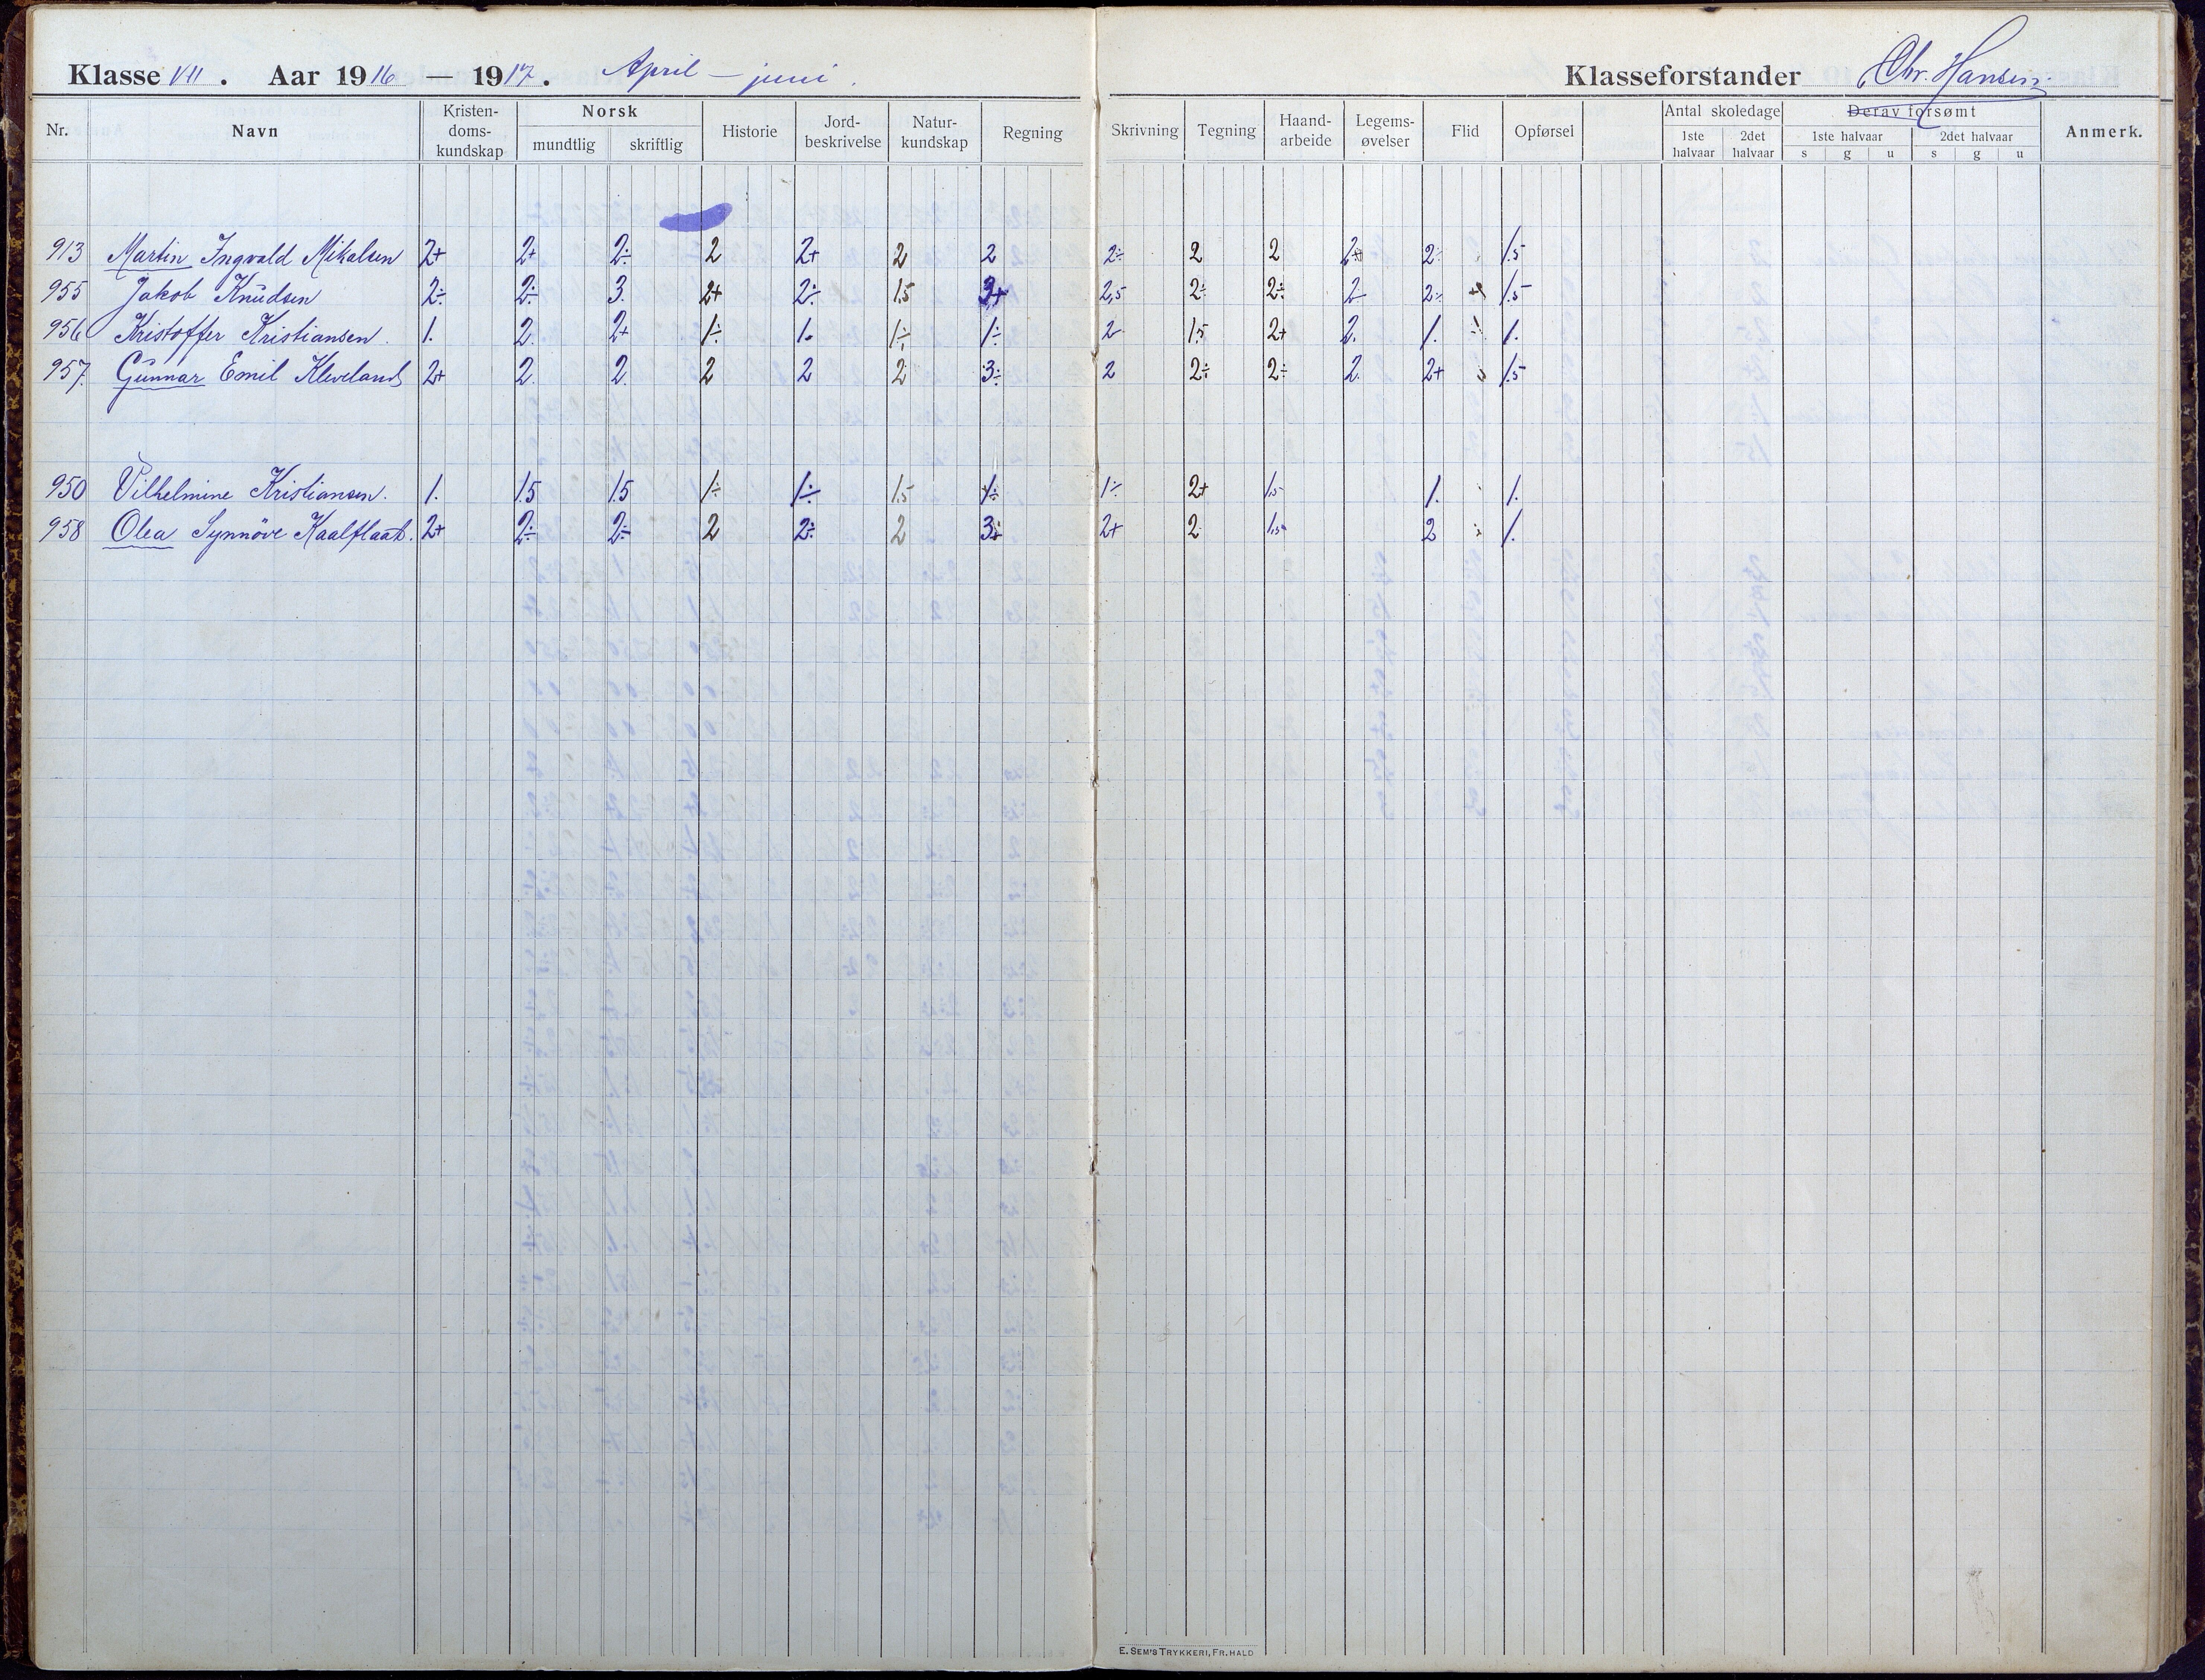 Klasse VII. Aar 1916 — 1917. April – juni. Klasseforstander Chr. Hansen.
Nr. Navn Kristendomskundskap Norsk mundtlig skriftlig Historie Jordbeskrivelse Naturkundskap Regning Skrivning Tegning Haandarbeide Legemsøvelser Flid Opførsel Antal skoledage 1ste halvaar 2det halvaar Derav forsømt 1ste halvaar s g u 2det halvaar s g u Anmerk.
913 Martin Ingvald Mikalsen 2+ 2+ 2÷ 2 2+ 2 2 2÷ 2 2 2+ 2÷ 1.5
955 Jakob Knudsen 2÷ 2÷ 3. 2+ 2÷ 1.5 3+ 2,5 2÷ 2÷ 2 2÷ 1.5
956 Kristoffer Kristiansen. 1. 2. 2+ 1÷ 1. 1÷ 1÷ 2 1.5 2+ 2. 1. 1.
957. Gunnar Emil Kleveland 2+ 2. 2. 2 2 2 3÷ 2 2÷ 2÷ 2. 2+ 1.5
950 Vilhelmine Kristiansen. 1. 1.5 1.5 1÷ 1÷ 1.5 1÷ 1÷ 2+ 1,5 1. 1.
958 Olea Synnöve Kaalflaat. 2+ 2÷ 2÷ 2 2÷ 2 3+ 2+ 2 1,5 2 1.
E. SEM'S TRYKKERI, FR. HALD